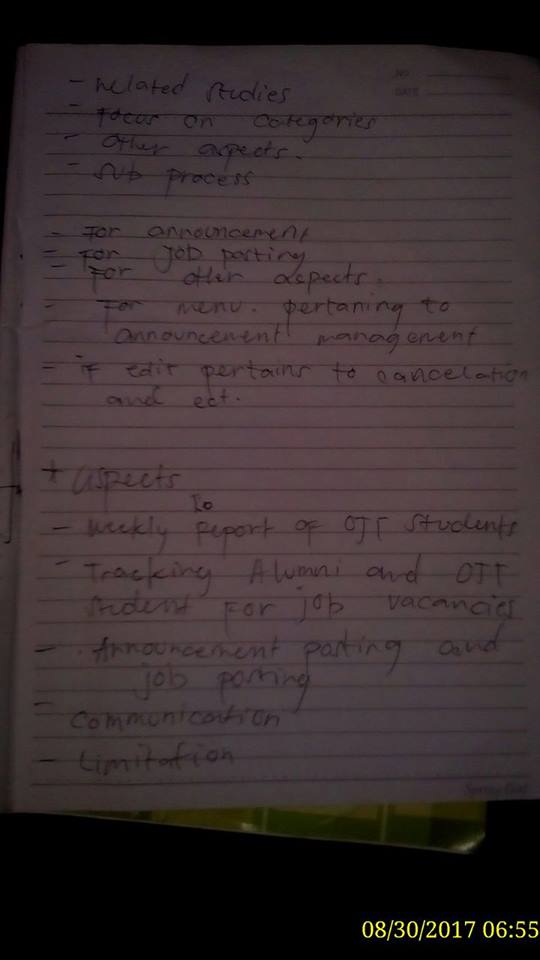 NO.
DATE
- Related studies
- Focus on categories
- Other aspects.
- Sub process
- For announcement
- For job posting
- For other aspects.
- For menu. pertaning to
announcement management
- if edit pertains to cancelation
and ect.
+ aspects
- Weekly Report of OJT Students
- Tracking Alumni and OJT
student For job vacancies
- Announcement posting and
job posting
- Communication
- Limitation
08/30/2017 06:55